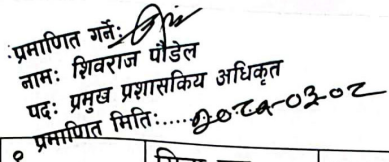 प्रमाणित गर्नेः
नामः शिवराज पौडेल
पदः प्रमुख प्रशासकिय अधिकृत
प्रमाणित मितिः.....२०८१-०३-०८